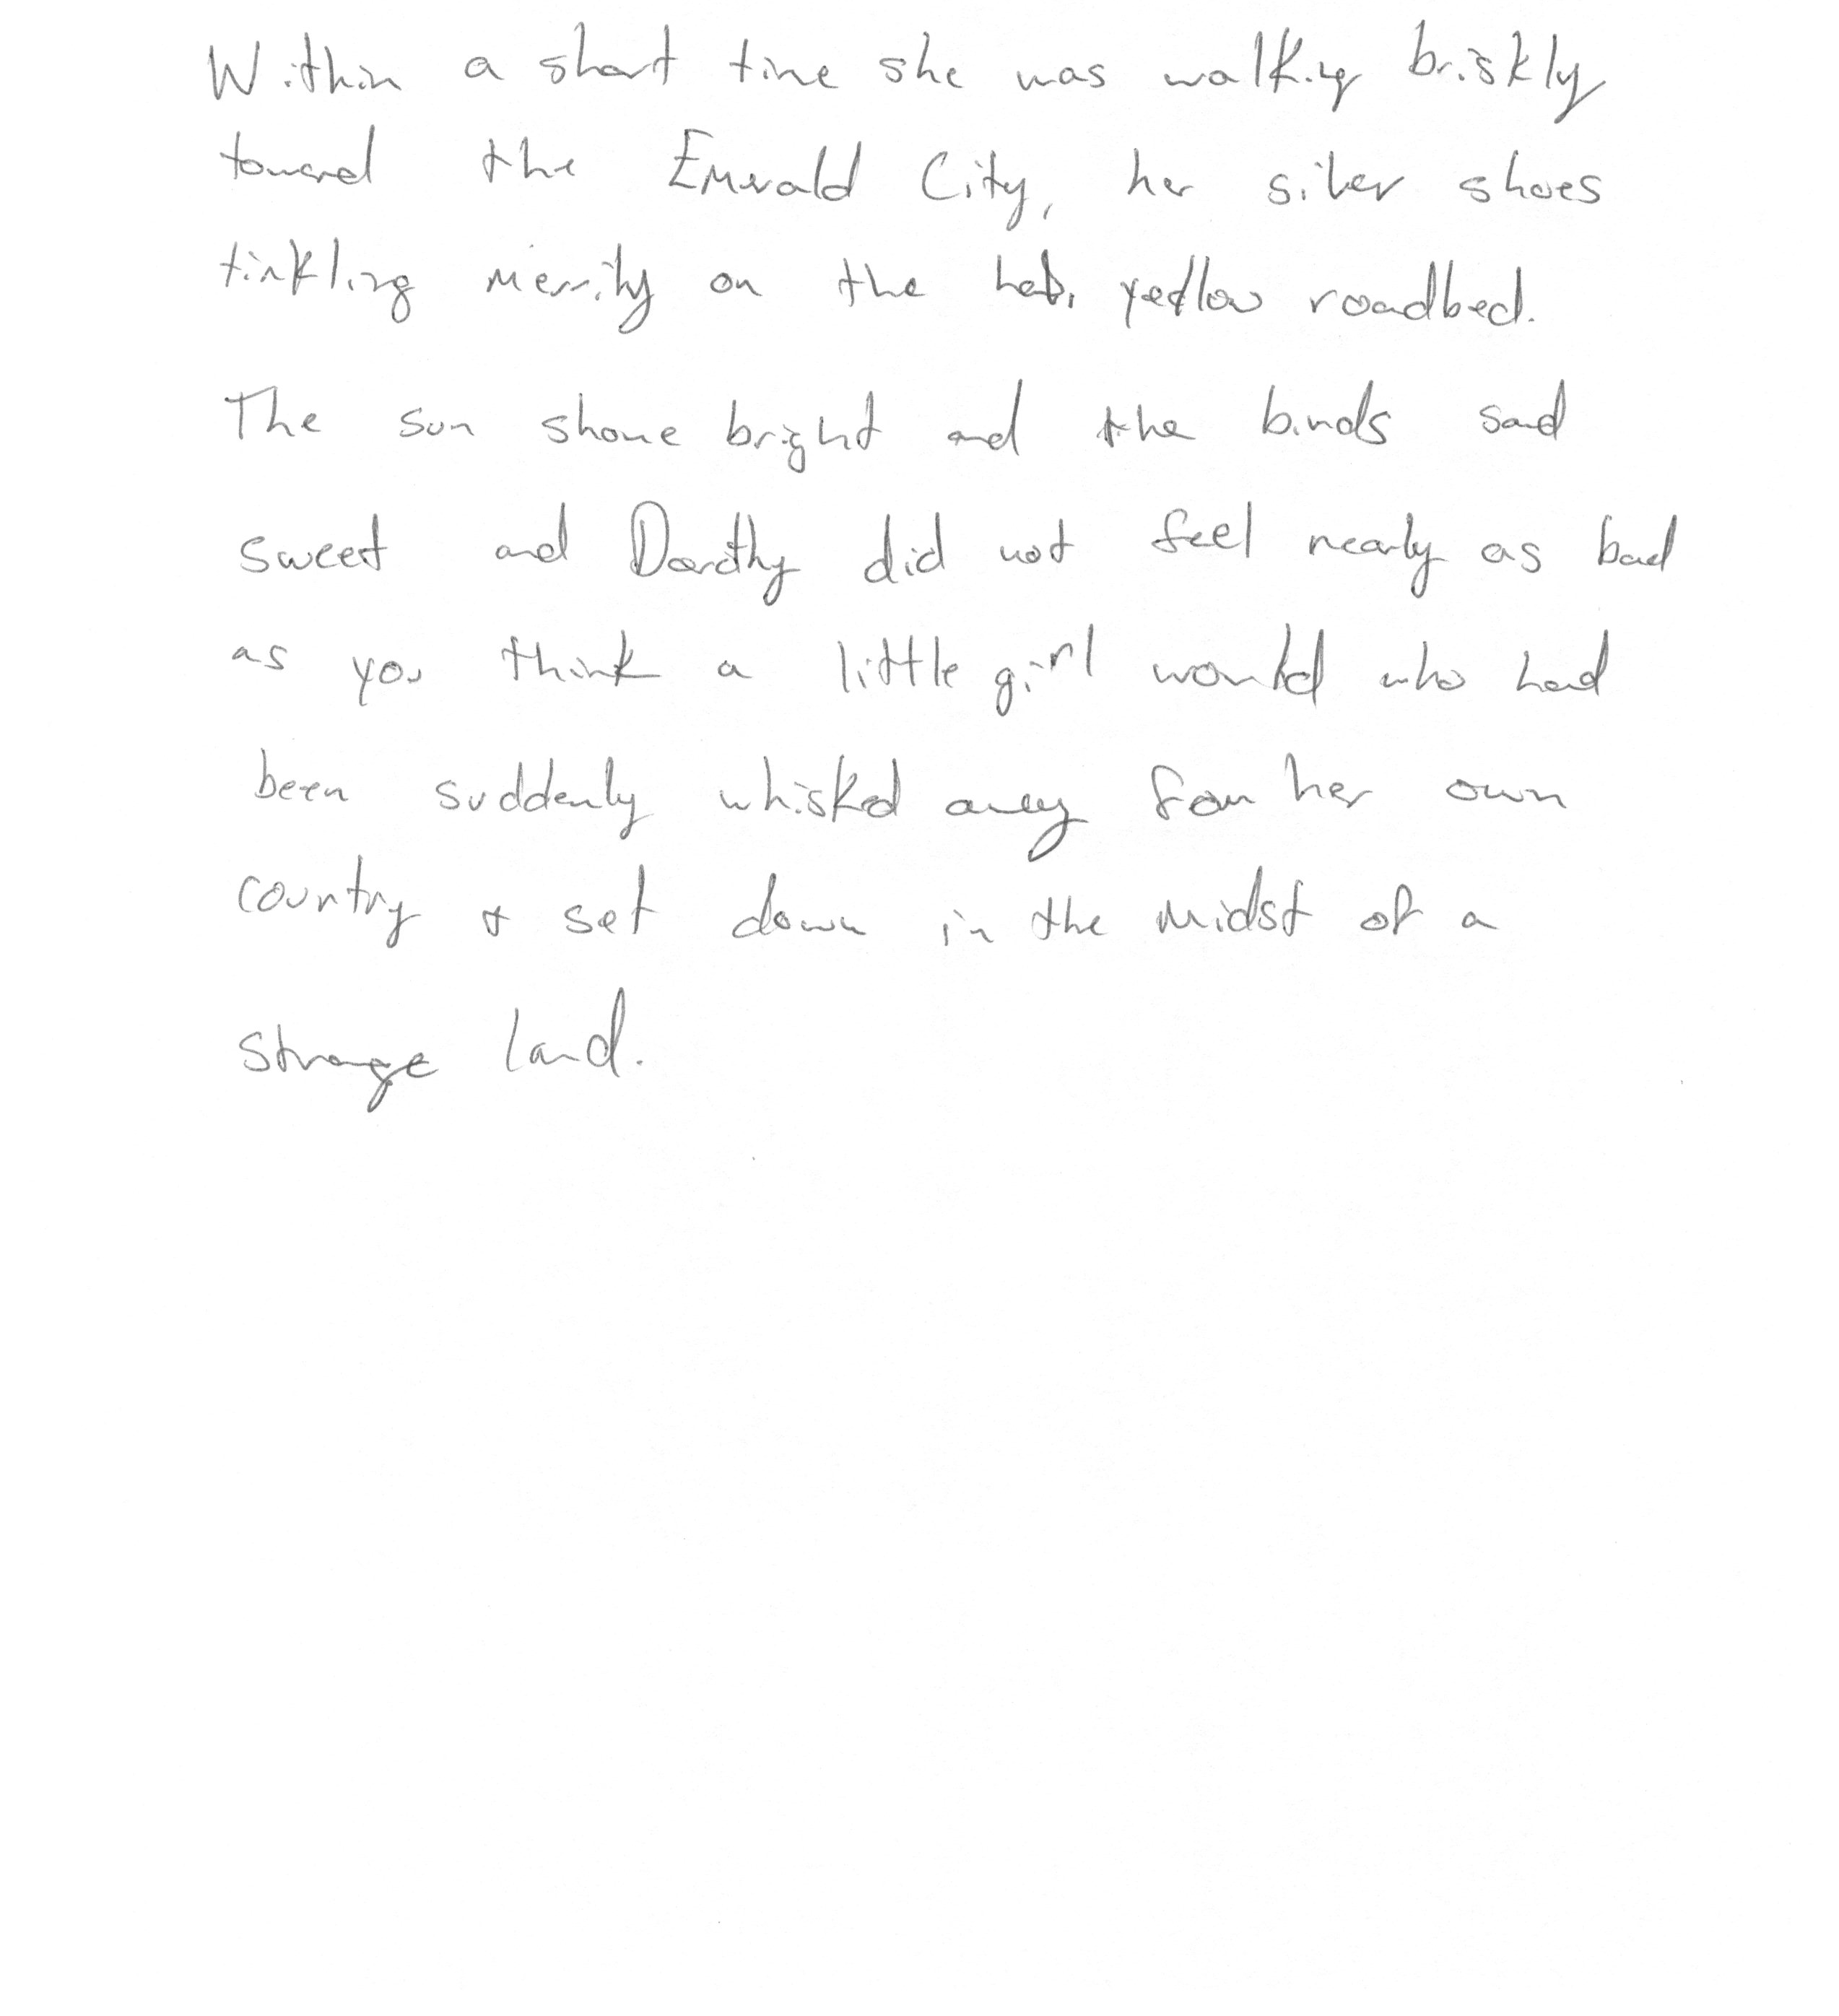 Within a short time she was walking briskly
toward the Emerald City, her silver shoes
tinkling merrily on the hard, yellow roadbed.
The sun shone bright and the birds sand
sweet and Dorothy did not feel nearly as bad
as you think a little girl would who had
been suddenly whisked away from her own
country & set down in the midst of a
strange land.